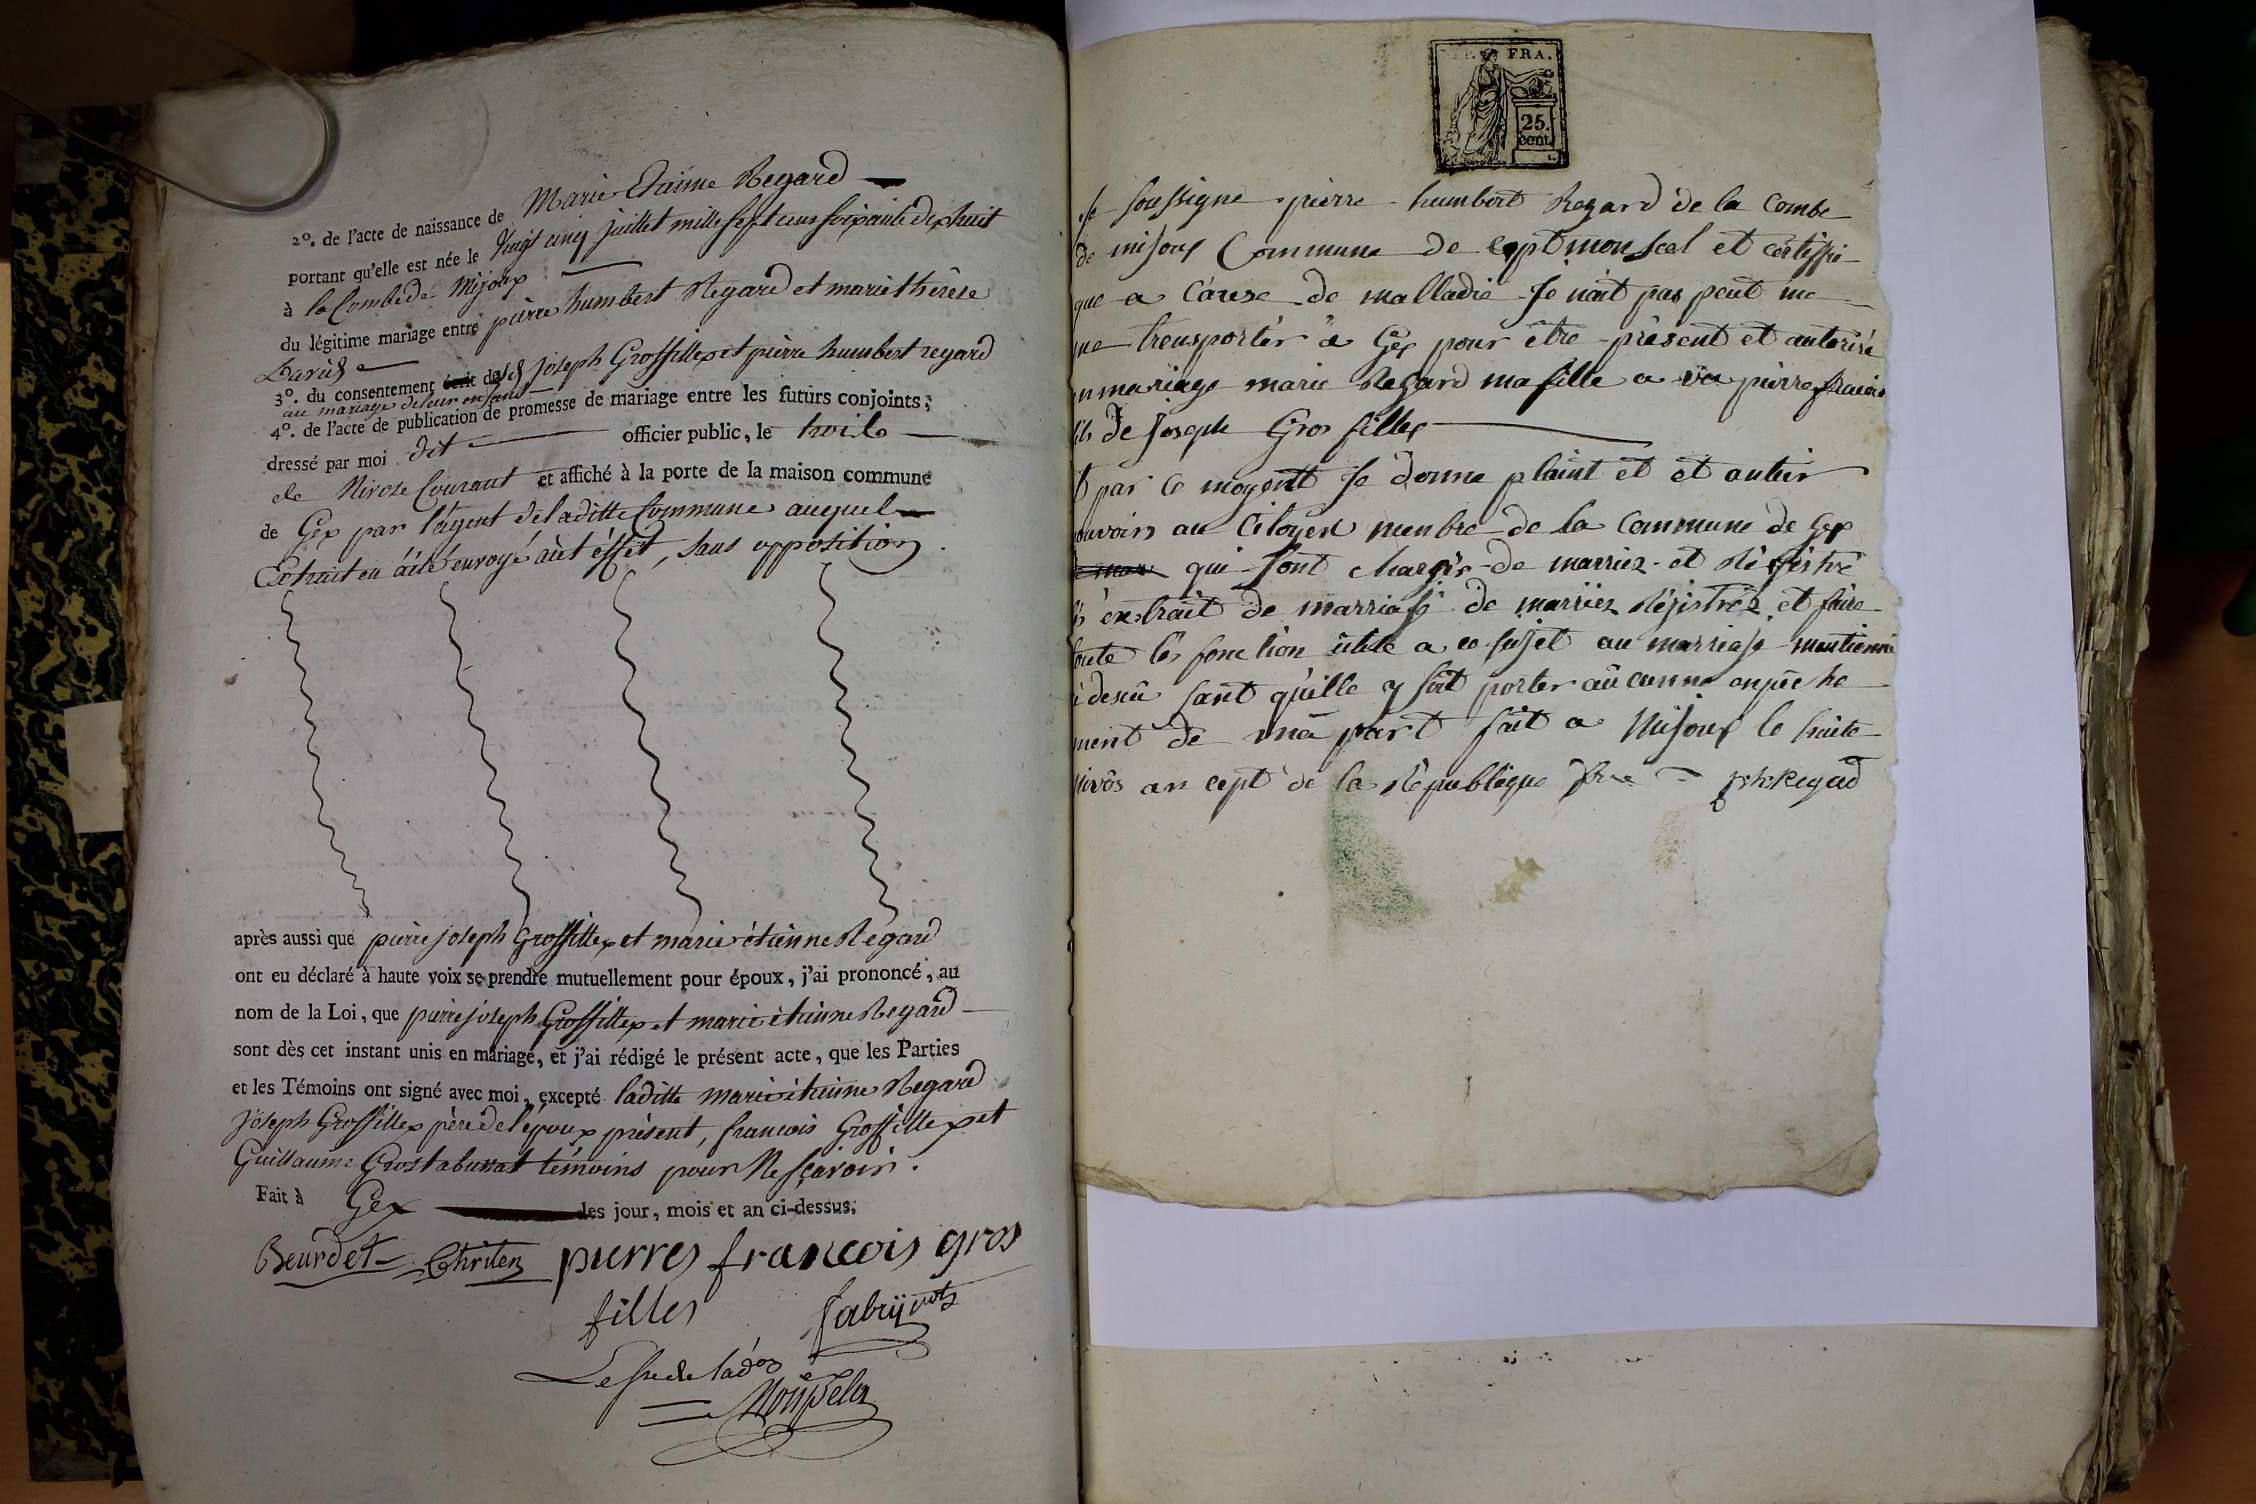 2º. de l'acte de naissance de Marie Etaine Regard
portant qu'elle est née le Vingt cinq juillet mille sept cens soixante dix huit
à la Combe de Mijoux
du légitime mariage entre pierre humbert Regard et marie thérèse
David
3º. du consentement écrit desd joseph Grosfillex et pierre humbert regard
au mariage de leur enfans
4º. de l'acte de publication de promesse de mariage entre les futurs conjoints;
dressé par moi dit officier public, le trois
de Nivose Courant et affiché à la porte de la maison commune
de Gex par l'agent de laditte Commune auquel
Extrait en a été envoyé à cet éffet, sans opposition.
après aussi que pierre joseph Grosfillex et marie étienne Regard
ont eu déclaré à haute voix se prendre mutuellement pour époux, j'ai prononcé, au
nom de la Loi, que pierre joseph Grosfillex et marie étienne Regard
sont dès cet instant unis en mariage, et j'ai rédigé le présent acte, que les Parties
et les Témoins ont signé avec moi, excepté laditte marie étienne Regard
joseph Grosfillex père de l'époux présent, francois Grosfillex et
Guillaume témoins pour Ne sçavoir.
Fait à Gex les jour, mois et an ci-dessus;
Beurdet Chriten pierres francois gros
filles fabry
FRA.
25.
cent.
Je soussigne pierre humbert Regard de la Combe
de mijoux Commune de cept monscel et certiffie
que a cause de malladie Je nait pas peut me
me trensporter a Gex pour être présent et autorisé
un mariage marie Regard ma fille a pierre francois
fils De joseph Gros fillex
et par ce moyent Je donne plaint et et antier
pouvoirs au Citoyen menbre de la Commune de Gex
qui sont charges de marriez et Régistré
les extrait de marriage de marriez Régistrez et faire
toute les fonction utile a ce sujet au marriage mentionné
ci desu sant qu'ille y soit porter aucunne enpeche
ment de ma part fait a Mijoux le huite
nivôs an cept de la République fse phRegad